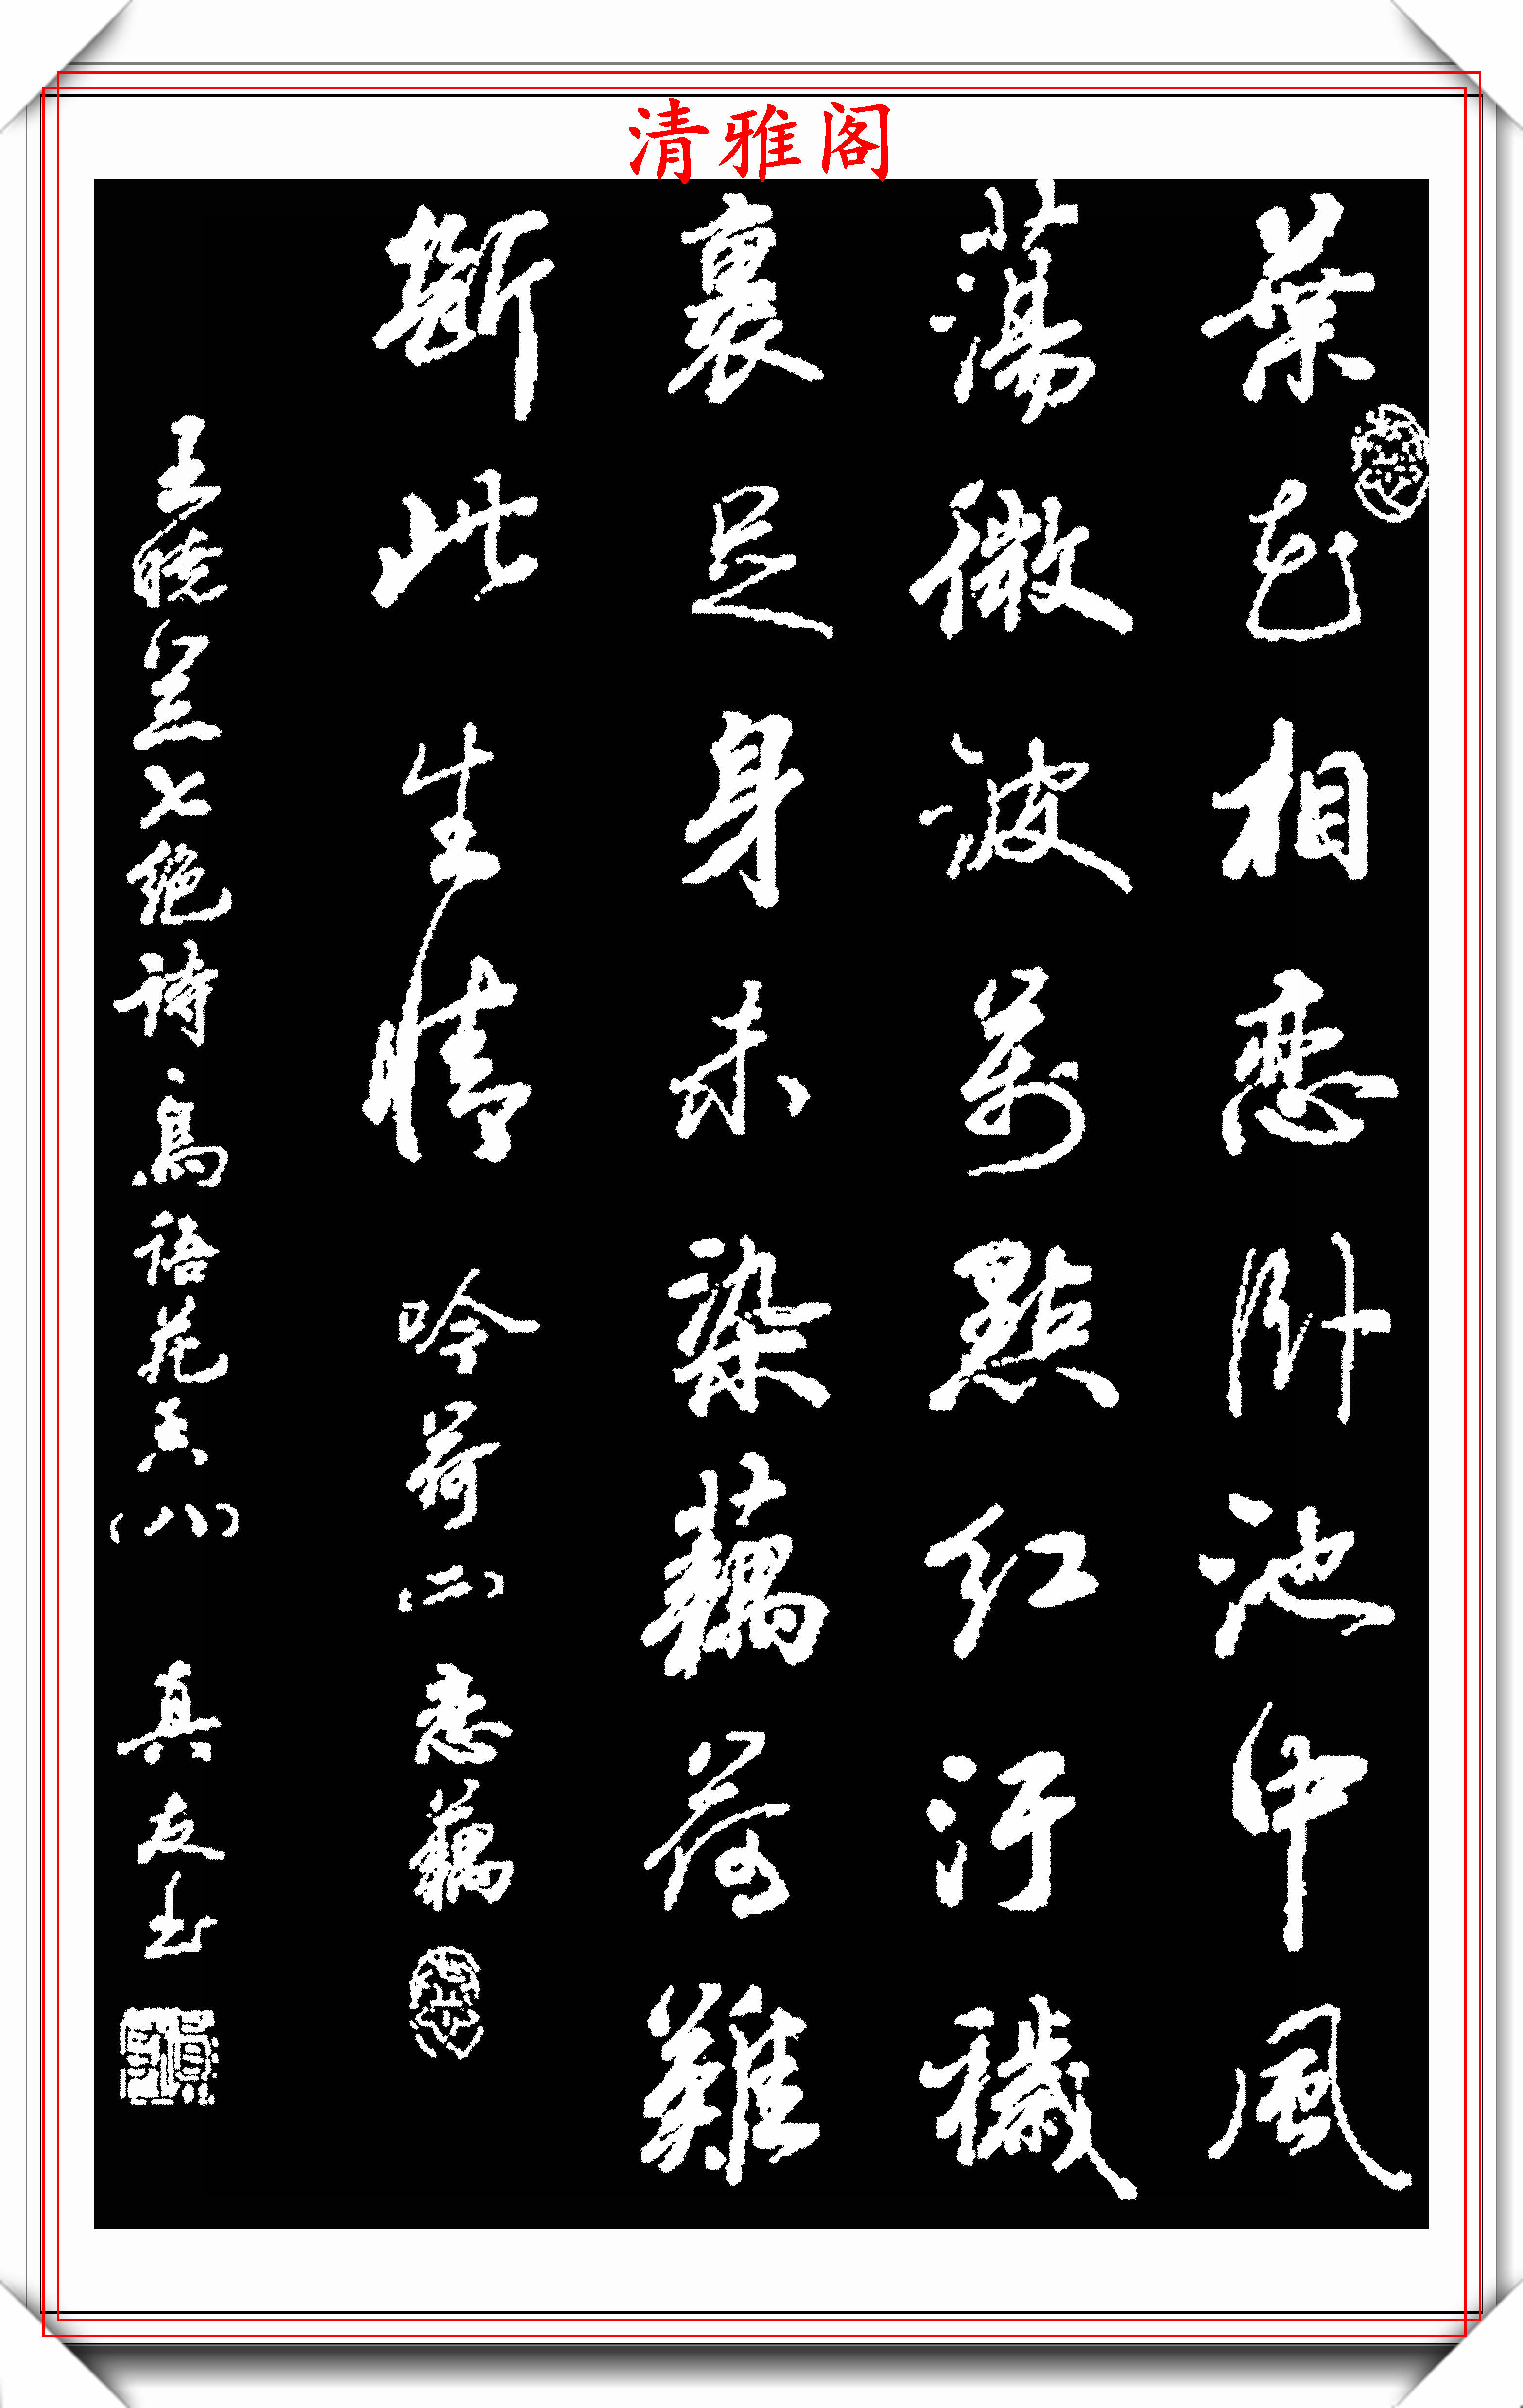 清雅阁
葉花相恋卧池中風
蕩微波萬點红汙穢
裏足身未染藕荷難
斷此生情 吟荷(二) 恋藕
王曉七絕詩、鳥語花香(八) 真友书